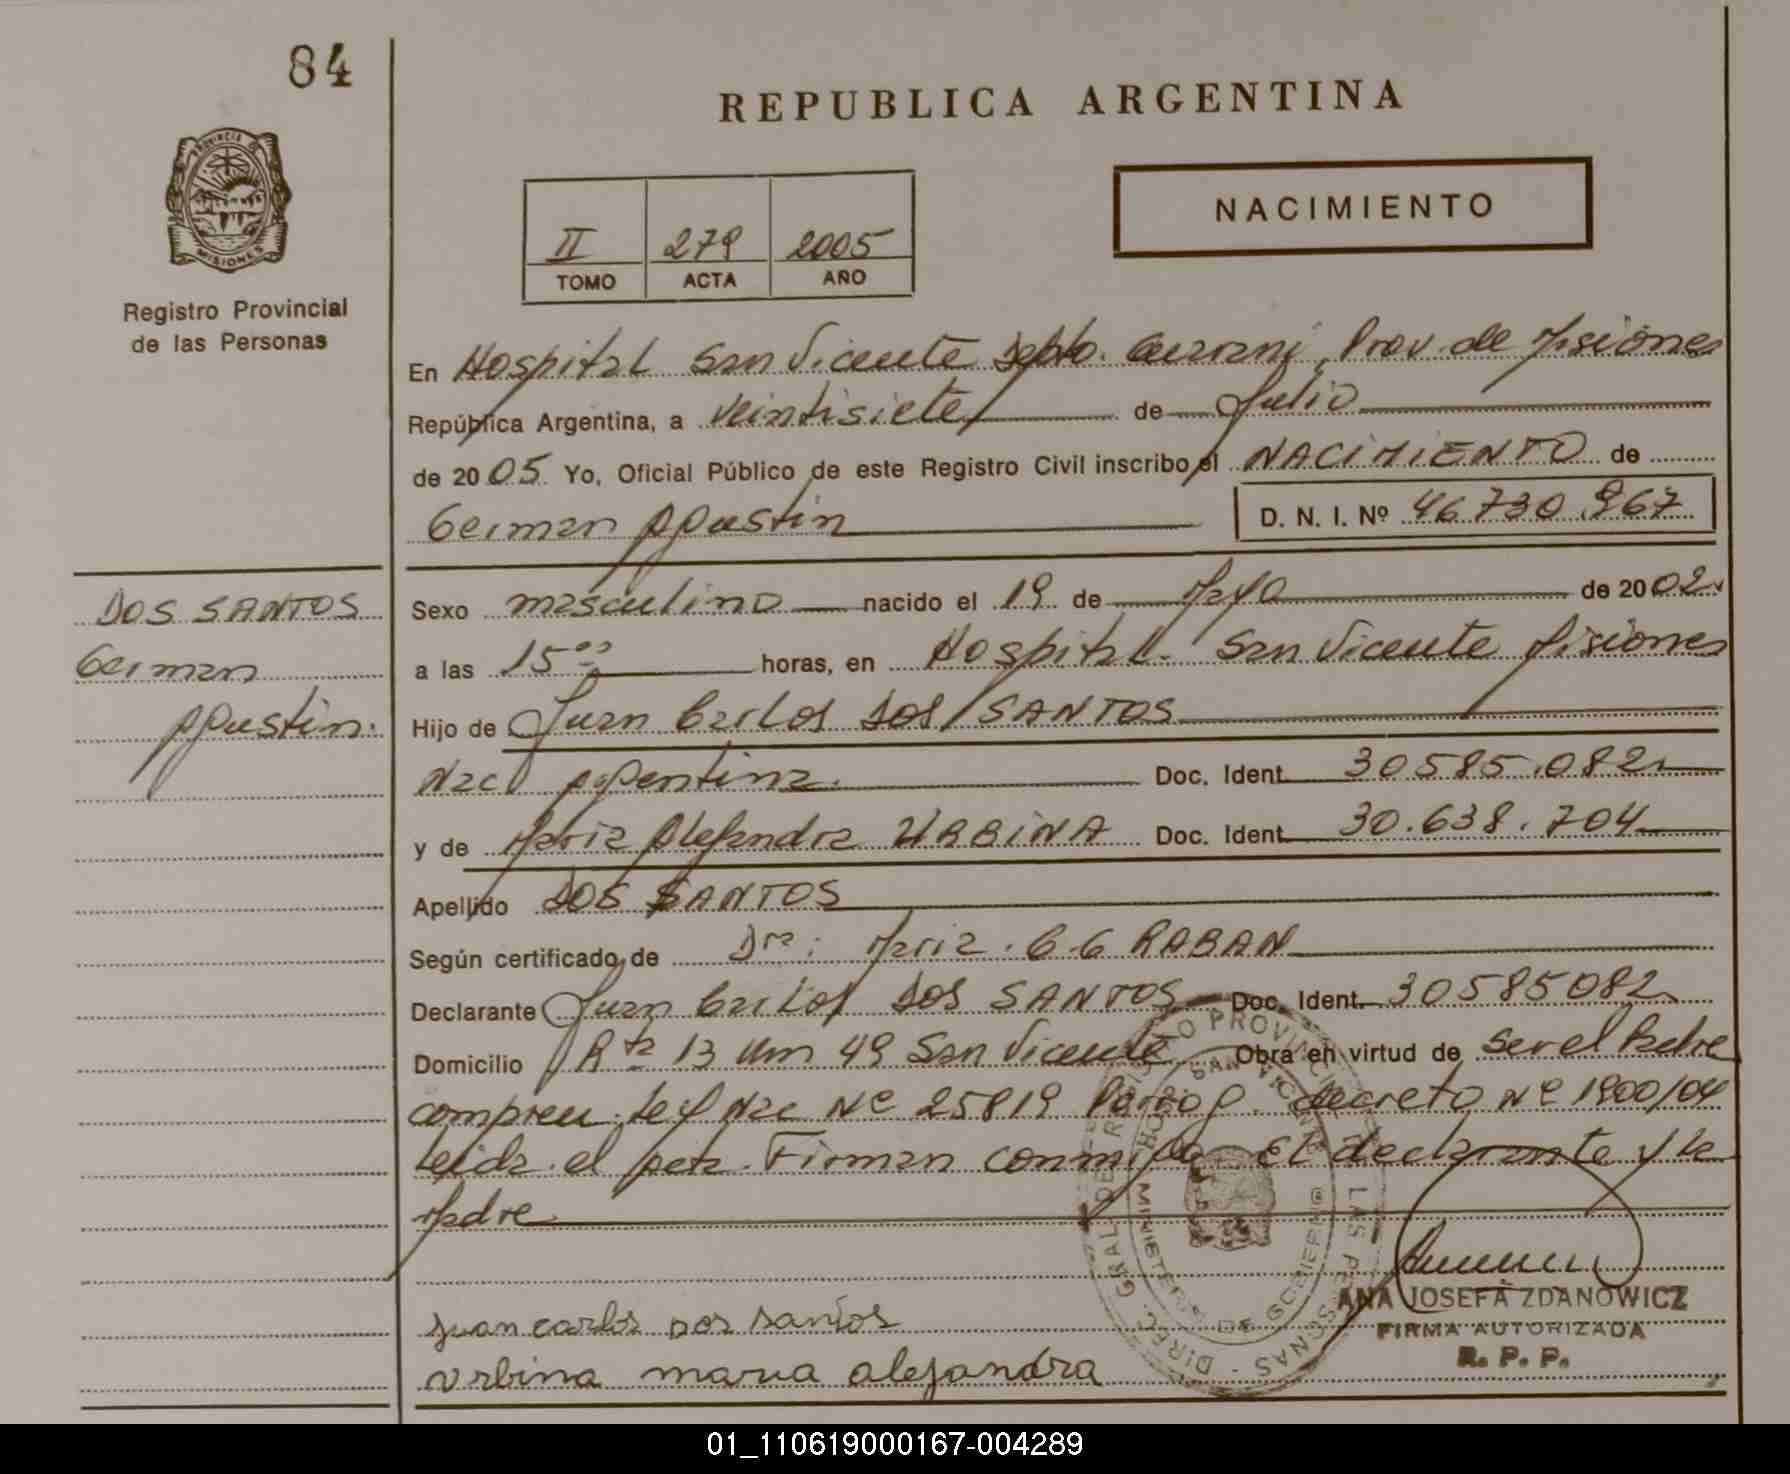 84
REPUBLICA ARGENTINA
PROVINCIA DE
MISIONES
Registro Provincial
de las Personas
II 279 2005
TOMO ACTA AÑO
NACIMIENTO
En Hospital San Vicente Dpto. Guarani, Prov. de Misiones
República Argentina, a veintisiete de Julio
de 2005 Yo, Oficial Público de este Registro Civil inscribo el NACIMIENTO de
German Agustin D. N. I. Nº 46.730.967
DOS SANTOS
German
Agustin.
Sexo masculino nacido el 19 de Mayo de 2002
a las 15 horas, en Hospital San Vicente Misiones
Hijo de Juan Carlos DOS SANTOS
Nac Argentina. Doc. Ident. 30585.082
y de Maria Alejandra URBINA Doc. Ident. 30.638.704
Apellido DOS SANTOS
Según certificado de Dra: Maria G RABAN
Declarante Juan Carlos DOS SANTOS Doc. Ident. 30585082
Domicilio Rta 13 Km 49 San Vicente Obra en virtud de ser el Padre
Ley Nac Nº 25819 decreto Nº 1900/04
Leida el acta. Firman conmigo El declarante y la
Madre
DIREC. GRAL DE REGISTRO PROVINCIAL DE LAS PERSONAS
HOSP. SAN VICENTE
MINISTERIO DE GOBIERNO
ANA JOSEFA ZDANOWICZ
FIRMA AUTORIZADA
R. P. P.
juan carlos dos santos
urbina maria alejandra
01_110619000167-004289